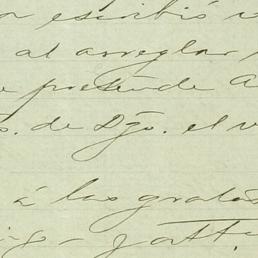 escribió
al arreglar
pretende A
s. de Dgo. el v
á las grales